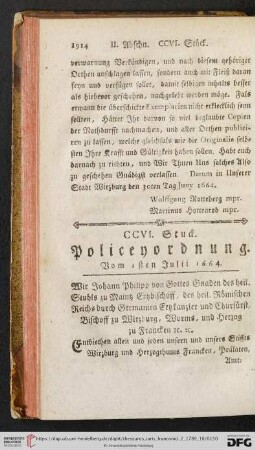 1914 II. Abschn. CCVI. Stück.
verwarnung Verkündigen, und nach diesem gehöriger
Orthen anschlagen lassen, sondern auch mit Fleiß daran
seyn und verfügen sollet, damit selbigen inhalts besser
als hiebevor geschehen, nachgelebt werden möge. Fals
ermaun die überschickte Exemplarien nicht erklecklich seyn
sollten, Hätter Ihr darvon so viel beglaubte Copien
der Nothdurfft nachmachen, und aller Orthen publicir-
en zu lassen, welche gleichfals wie die Originalia selb-
sten Ihre Krafft und Gültigkeit haben sollen. Habt euch
darnach zu richten, und Wir Thuen Uns solches Also
zu geschehen Gnädigst verlassen. Datum in Unserer
Stadt Wirzburg den 30ten Tag Juny 1664.
Wolffgang Rotteberg mpr.
Martinus Howarod mpr.
CCVI. Stuck.
Policeyordnung.
Vom 1sten Julii 1664.
Wir Johann Philipp von Gottes Gnaden des heil.
Stuhls zu Mainz Erzbischoff, des heil. Römischen
Reichs durch Germanien Erzkanzler und Churfürst,
Bischoff zu Wirzburg, Worms, und Herzog
zu Francken ꝛc. ꝛc.
Entbiethen allen und jeden unsern und unsers Stiffts
Wirzburg und Herzogthums Francken, Prälaten,
Amt-